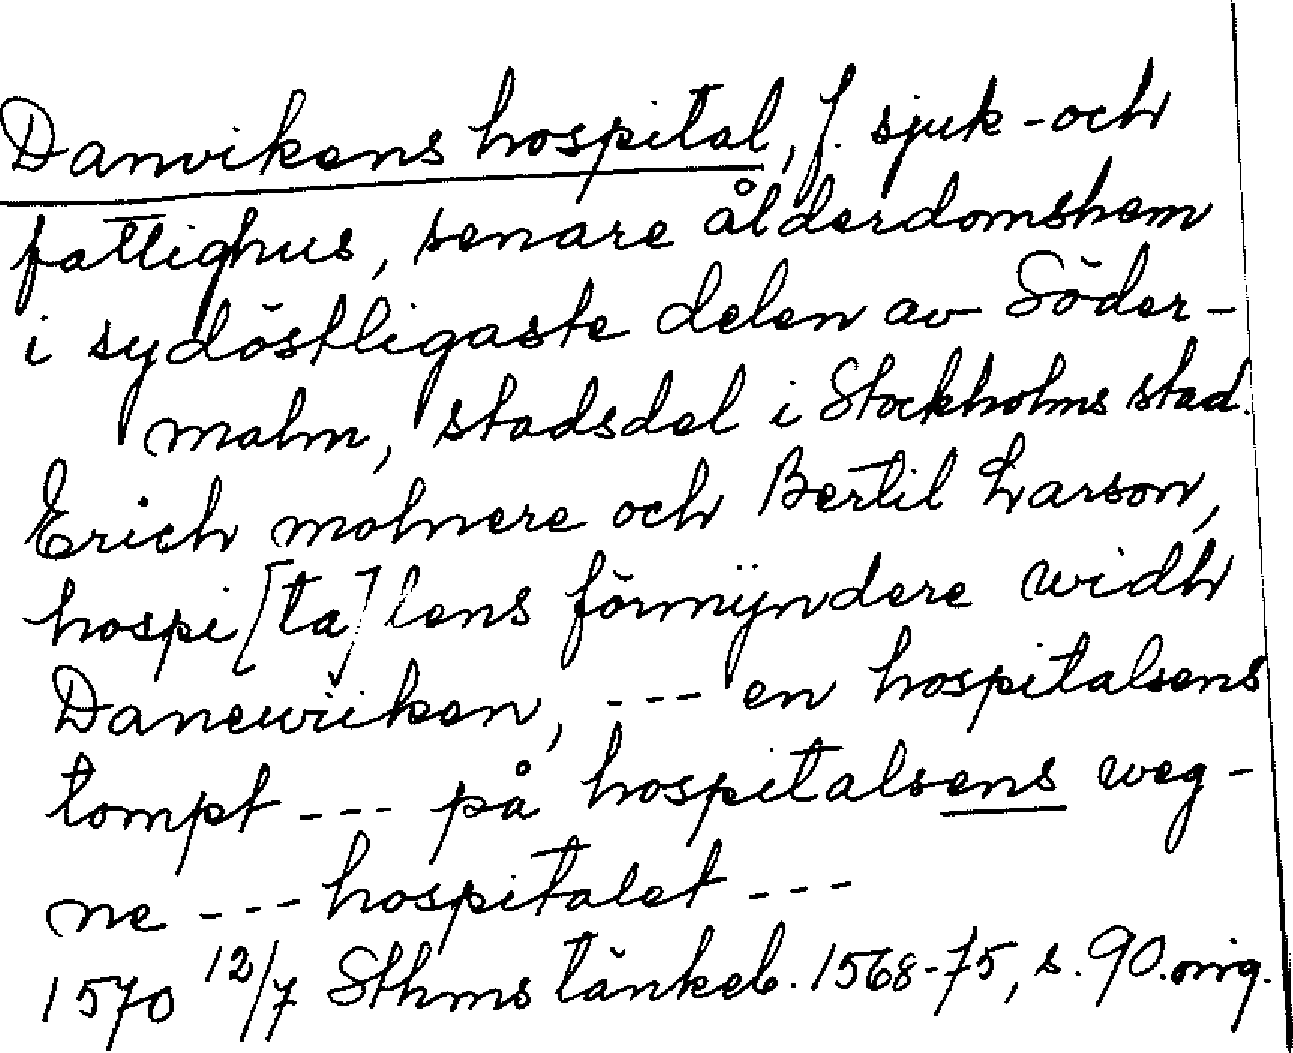 Danvikens hospital, f. sjuk- och
fattighus, senare ålderdomshem
i sydöstligaste delen av Söder-
malm, stadsdel i Stockholms stad.
Erich molnere och Bertil Larson,
hospi[ta]lens förmÿndere widh
Danewiiken, --- en hospitalsens
tompt --- på hospitalsens weg-
ne --- hospitalet ---
1570 12/7 Sthms tänkeb. 1568-75, s. 90. orig.